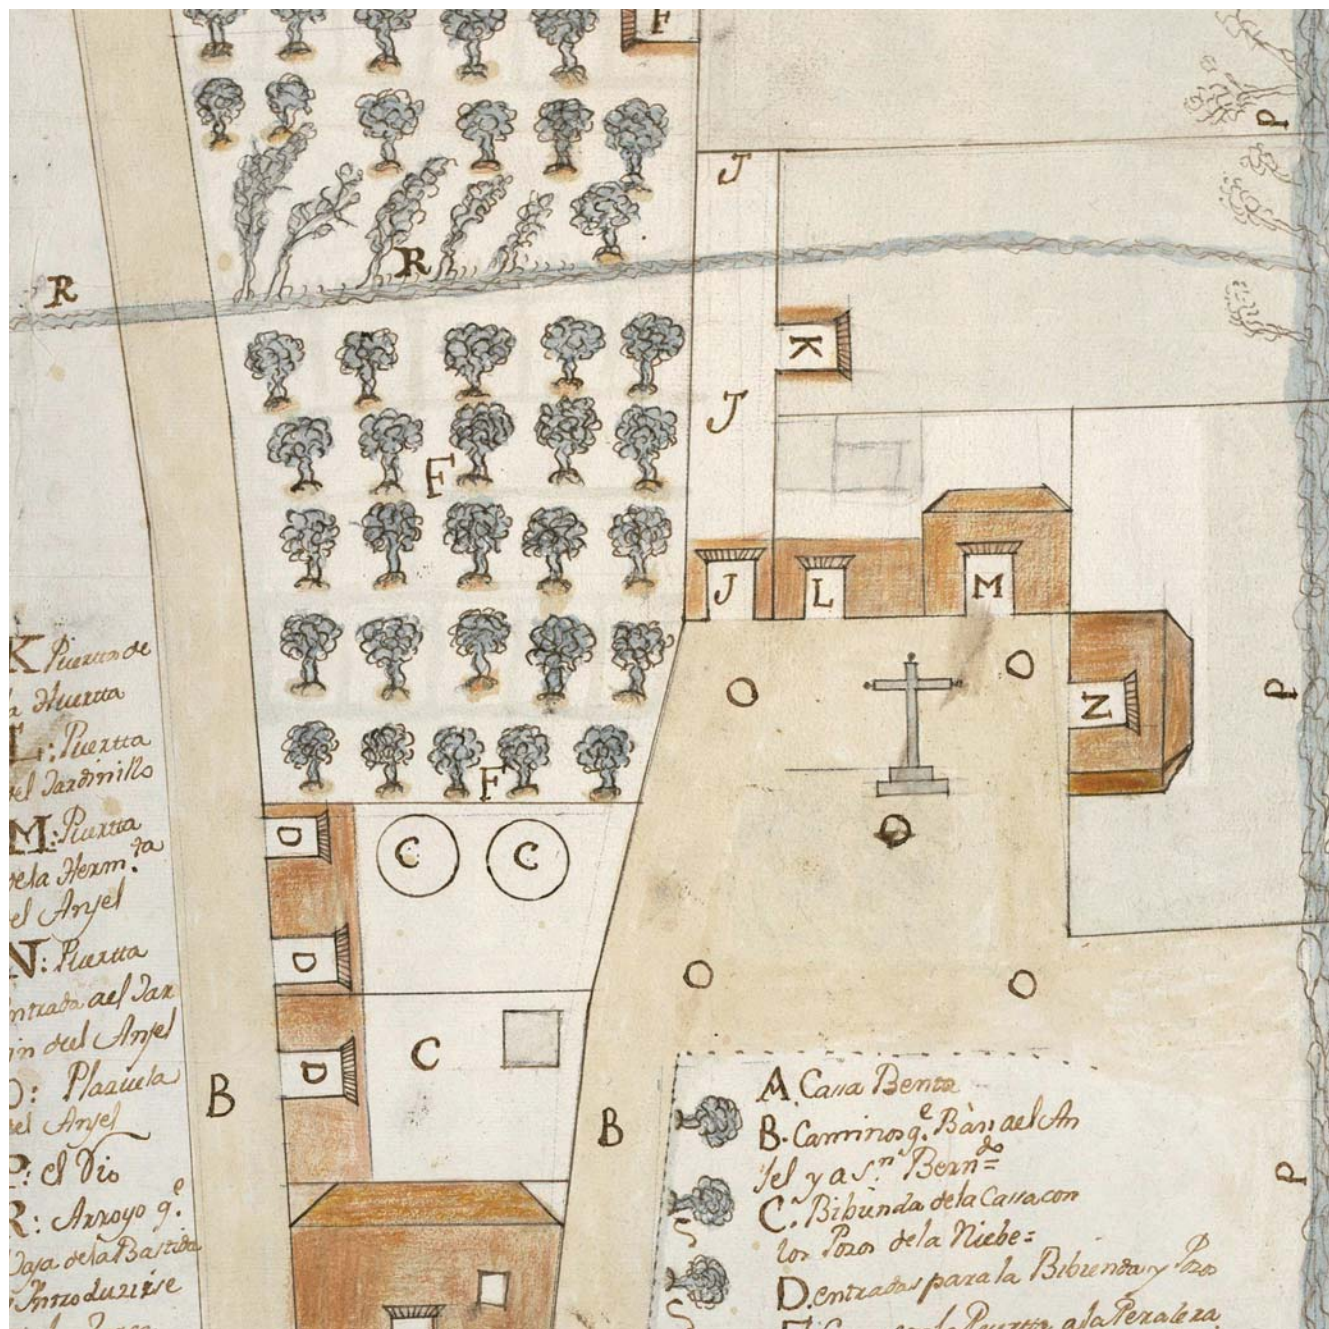 F
P
J
R
R
K
J
F
J
L
M
O
O
N
P
F
O
D
C
C
D
O
O
D
C
B
B
P
K Puerta de
la Huertta
L: Puertta
del Jardinillo
M: Puertta
dela Herm.ta
del Anjel
N: Puertta
entrada ael Jar
in del Anjel
O: Plazuela
del Anjel
P: el Rio
R: Arroyo q.e
Vaja dela Bastida
Introduzirse
A. Cassa Benta
B. Caminos q.e Bàn ael An
Jel y a S.n Bern.do=
C. Bibienda dela Cassa con
los Pozos dela Niebe=
D. entradas para la Bibienda y Pozos
Puertta a la Peralera